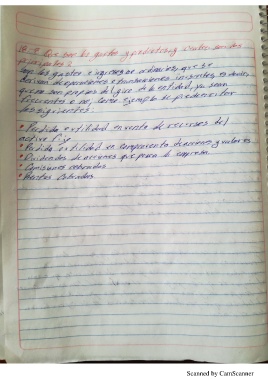 los gastos y productos y cuáles son los
principales?
Son los gastos e ingresos no ordinarios, que se
derivan de operaciones e transacciones inusuales, es decir,
que no son propios del giro de la entidad, ya sean
frecuentes o no, como ejemplo se pueden citar
los siguientes:
• Pérdida o utilidad en venta de recursos del
activo fijo
• Pérdida o utilidad en compraventa de acciones y valores
• Dividendos de acciones que posea la empresa
• Comisiones cobradas
• Rentas Cobradas
Scanned by CamScanner